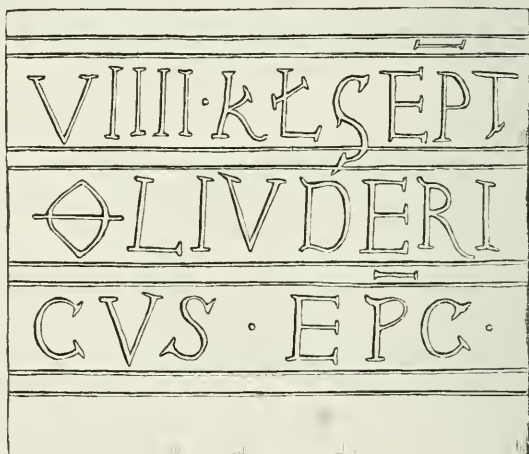 VIIII · KŁ SEP̅T
ꝊLIVDERI
CVS · EP̅C ·